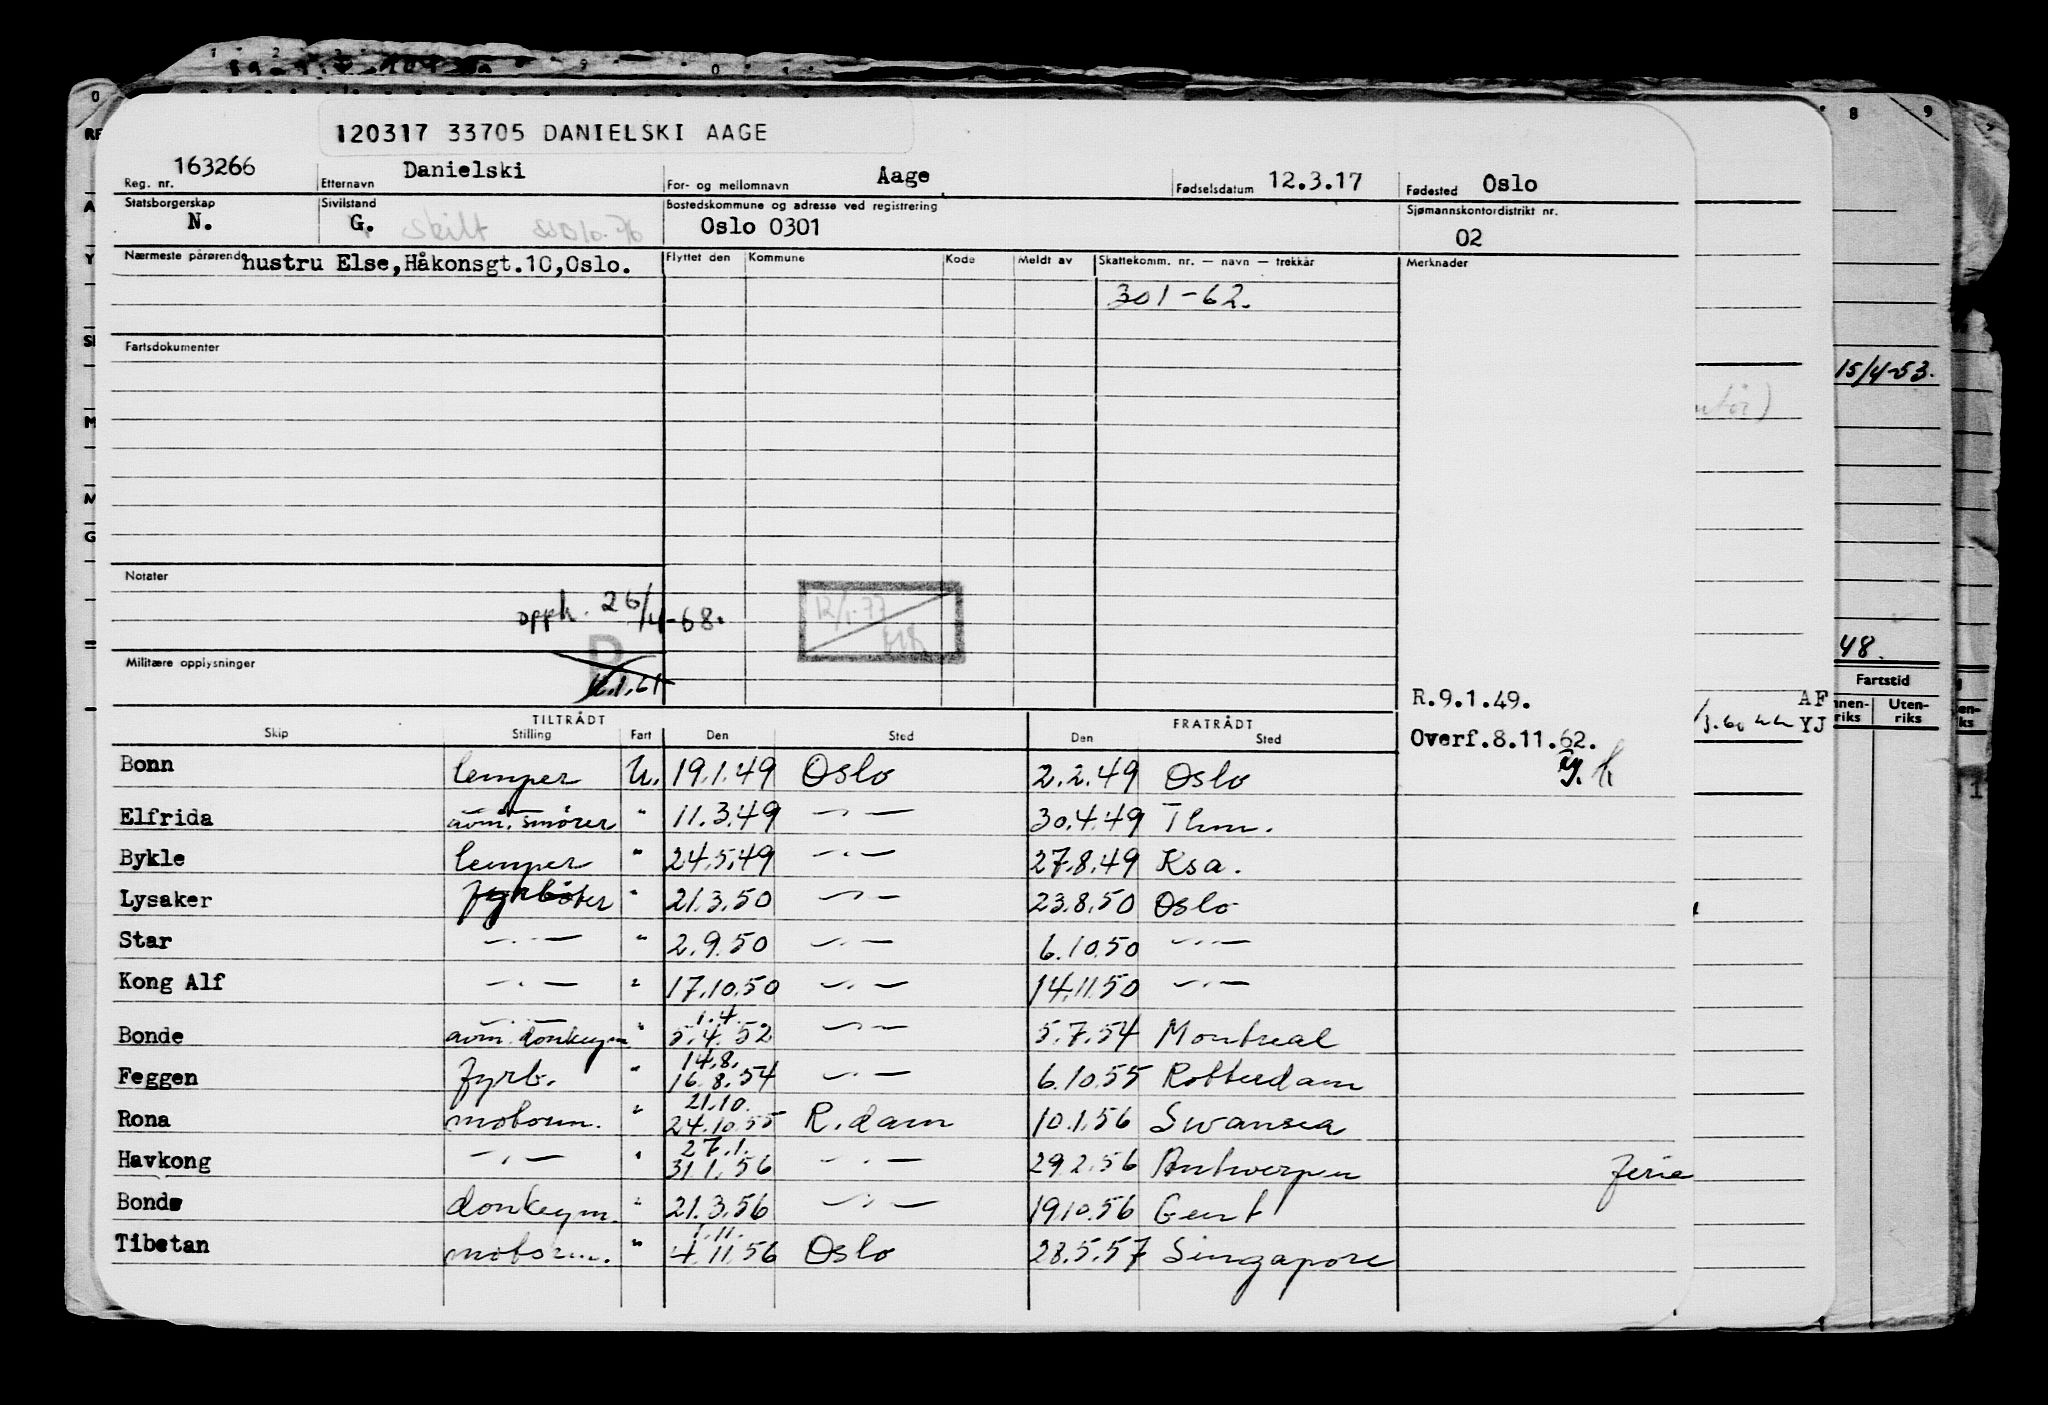 120317 33705 DANIELSKI AAGE
Reg. nr. 163266 Etternavn Danielski For- og mellomnavn Aage Fødselsdatum 12.3.17 Fødested Oslo
Statsborgerskap N. Sivilstand G. skilt Bostedskommune og adresse ved registrering Oslo 0301 Sjømannskontordistrikt nr. 02
Nærmeste pårørende hustru Else, Håkonsgt.10, Oslo. Flyttet den Kommune Kode Meldt av Skattekomm. nr. — navn — trekkår Merknader
301-62.
Fartsdokumenter
Notater
opph. 26/4-68.
12/1-77
Militære opplysninger
R.9.1.49.
Overf.8.11.62.
TILTRÅDT FRATRÅDT
Skip Stilling Fart Den Sted Den Sted
Bonn lemper U. 19.1.49 Oslo 2.2.49 Oslo
Elfrida avm. smører " 11.3.49 —"— 30.4.49 Thm.
Bykle lemper " 24.5.49 —"— 27.8.49 Ksa.
Lysaker fyrbøter " 21.3.50 —"— 23.8.50 Oslo
Star —"— " 2.9.50 —"— 6.10.50 —"—
Kong Alf —"— " 17.10.50 —"— 14.11.50 —"—
1.4.
Bonde avm. donkeym " 5.4.52 —"— 5.7.54 Montreal
14.8.
Feggen fyrb. " 16.8.54 —"— 6.10.55 Rotterdam
21.10.
Rona motorm. " 24.10.55 R.dam 10.1.56 Swansea
27.1.
Havkong —"— " 31.1.56 —"— 29.2.56 Antwerpen ferie
Bonde donkeym. " 21.3.56 —"— 19.10.56 Gent
1.11.
Tibetan motorm. " 4.11.56 Oslo 28.5.57 Singapore
15/4-53.
48.
Fartstid
Uten-
riks
AF
YJ